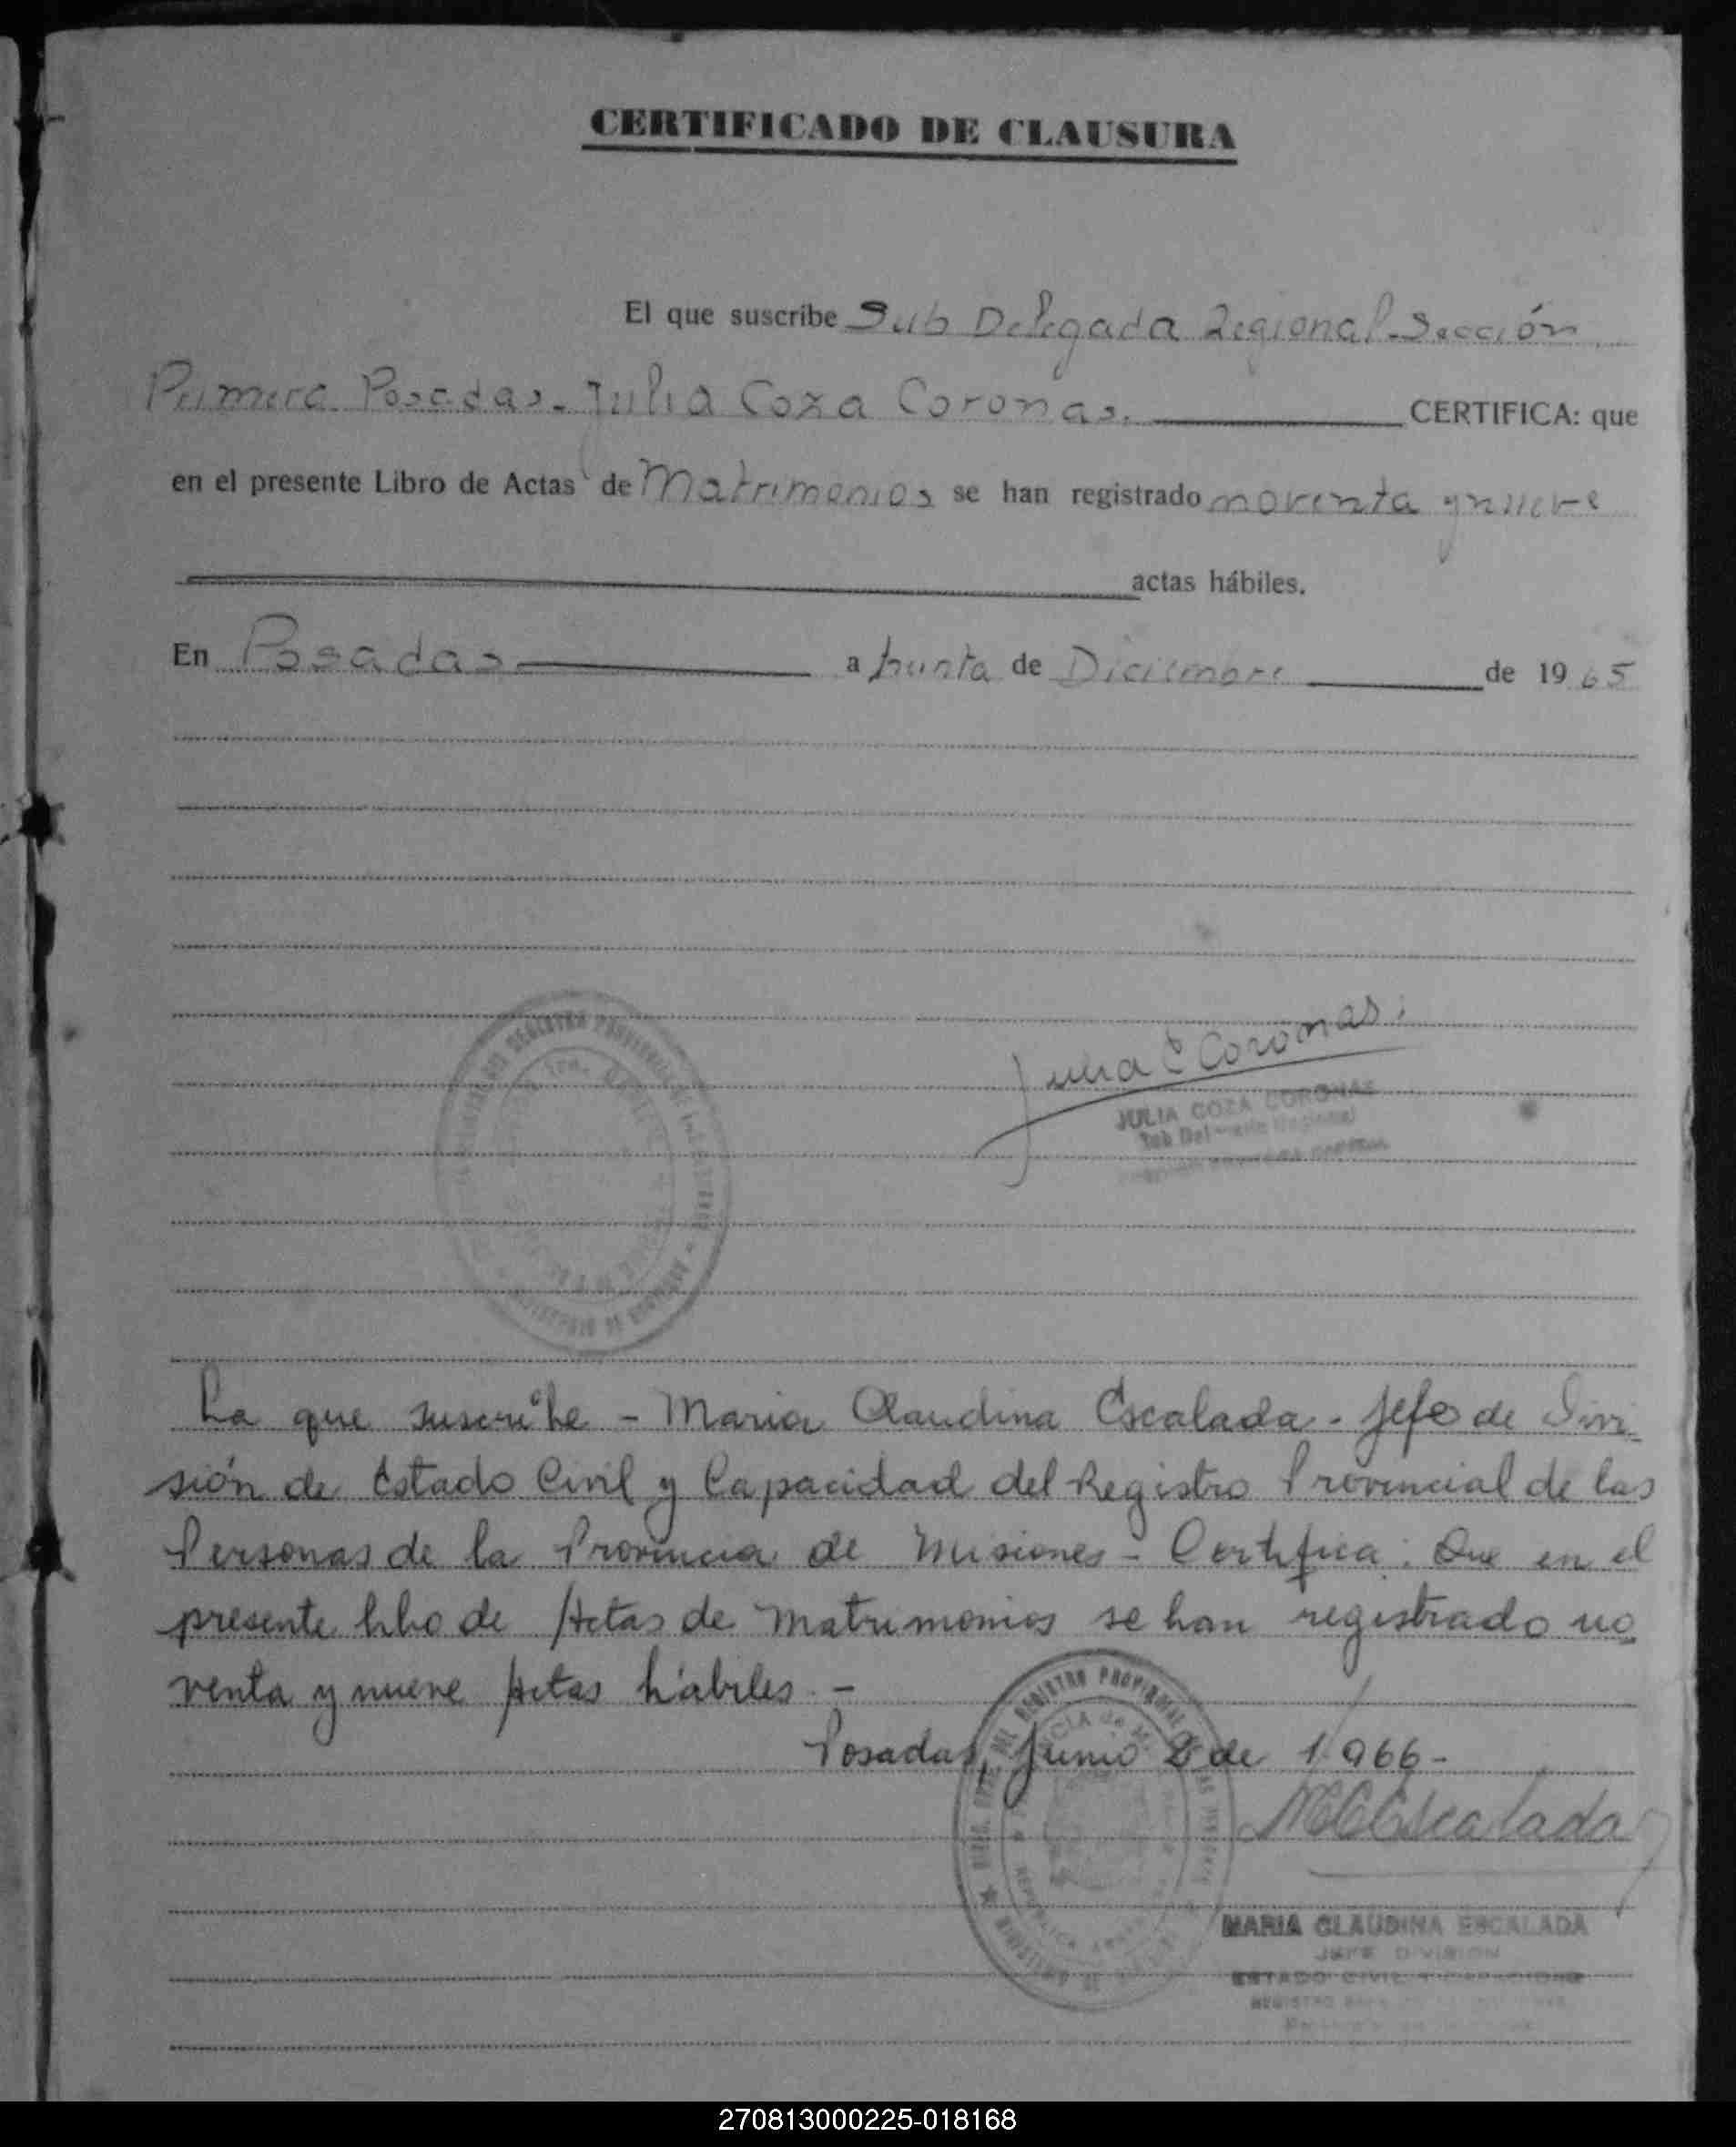 CERTIFICADO DE CLAUSURA
El que suscribe Sub Delegada Regional-Sección
Primera Posadas. Julia Coza Coronas. CERTIFICA: que
en el presente Libro de Actas de Matrimonios se han registrado noventa y nueve
actas hábiles.
En Posadas a treinta de Diciembre de 1965
Julia C Coronas.
JULIA COZA CORONAS
Sub Regional
La que suscribe - Maria Claudina Escalada - Jefe de Divi
sión de Estado Civil y Capacidad del Registro Provincial de las
Personas de la Provincia de Misiones - Certifica: Que en el
presente libro de Actas de Matrimonios se han registrado no
venta y nueve Actas hábiles. -
Posadas, Junio 2 de 1966-
MCEscalada
DEL REGISTRO PROVINCIAL
REPUBLICA
MARIA CLAUDINA ESCALADA
JEFE DIVISION
ESTADO CIVIL Y CAPACIDAD
REGISTRO
270813000225-018168